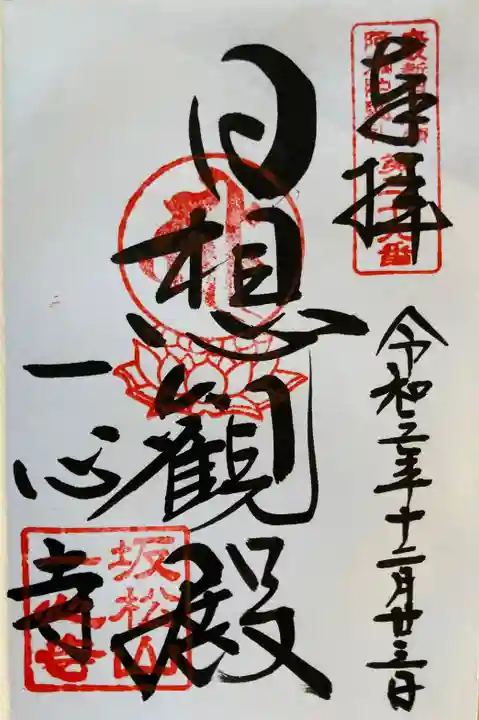 奉拝
令和二年十二月廿三日
日想観殿
一心寺
坂松山
一心寺